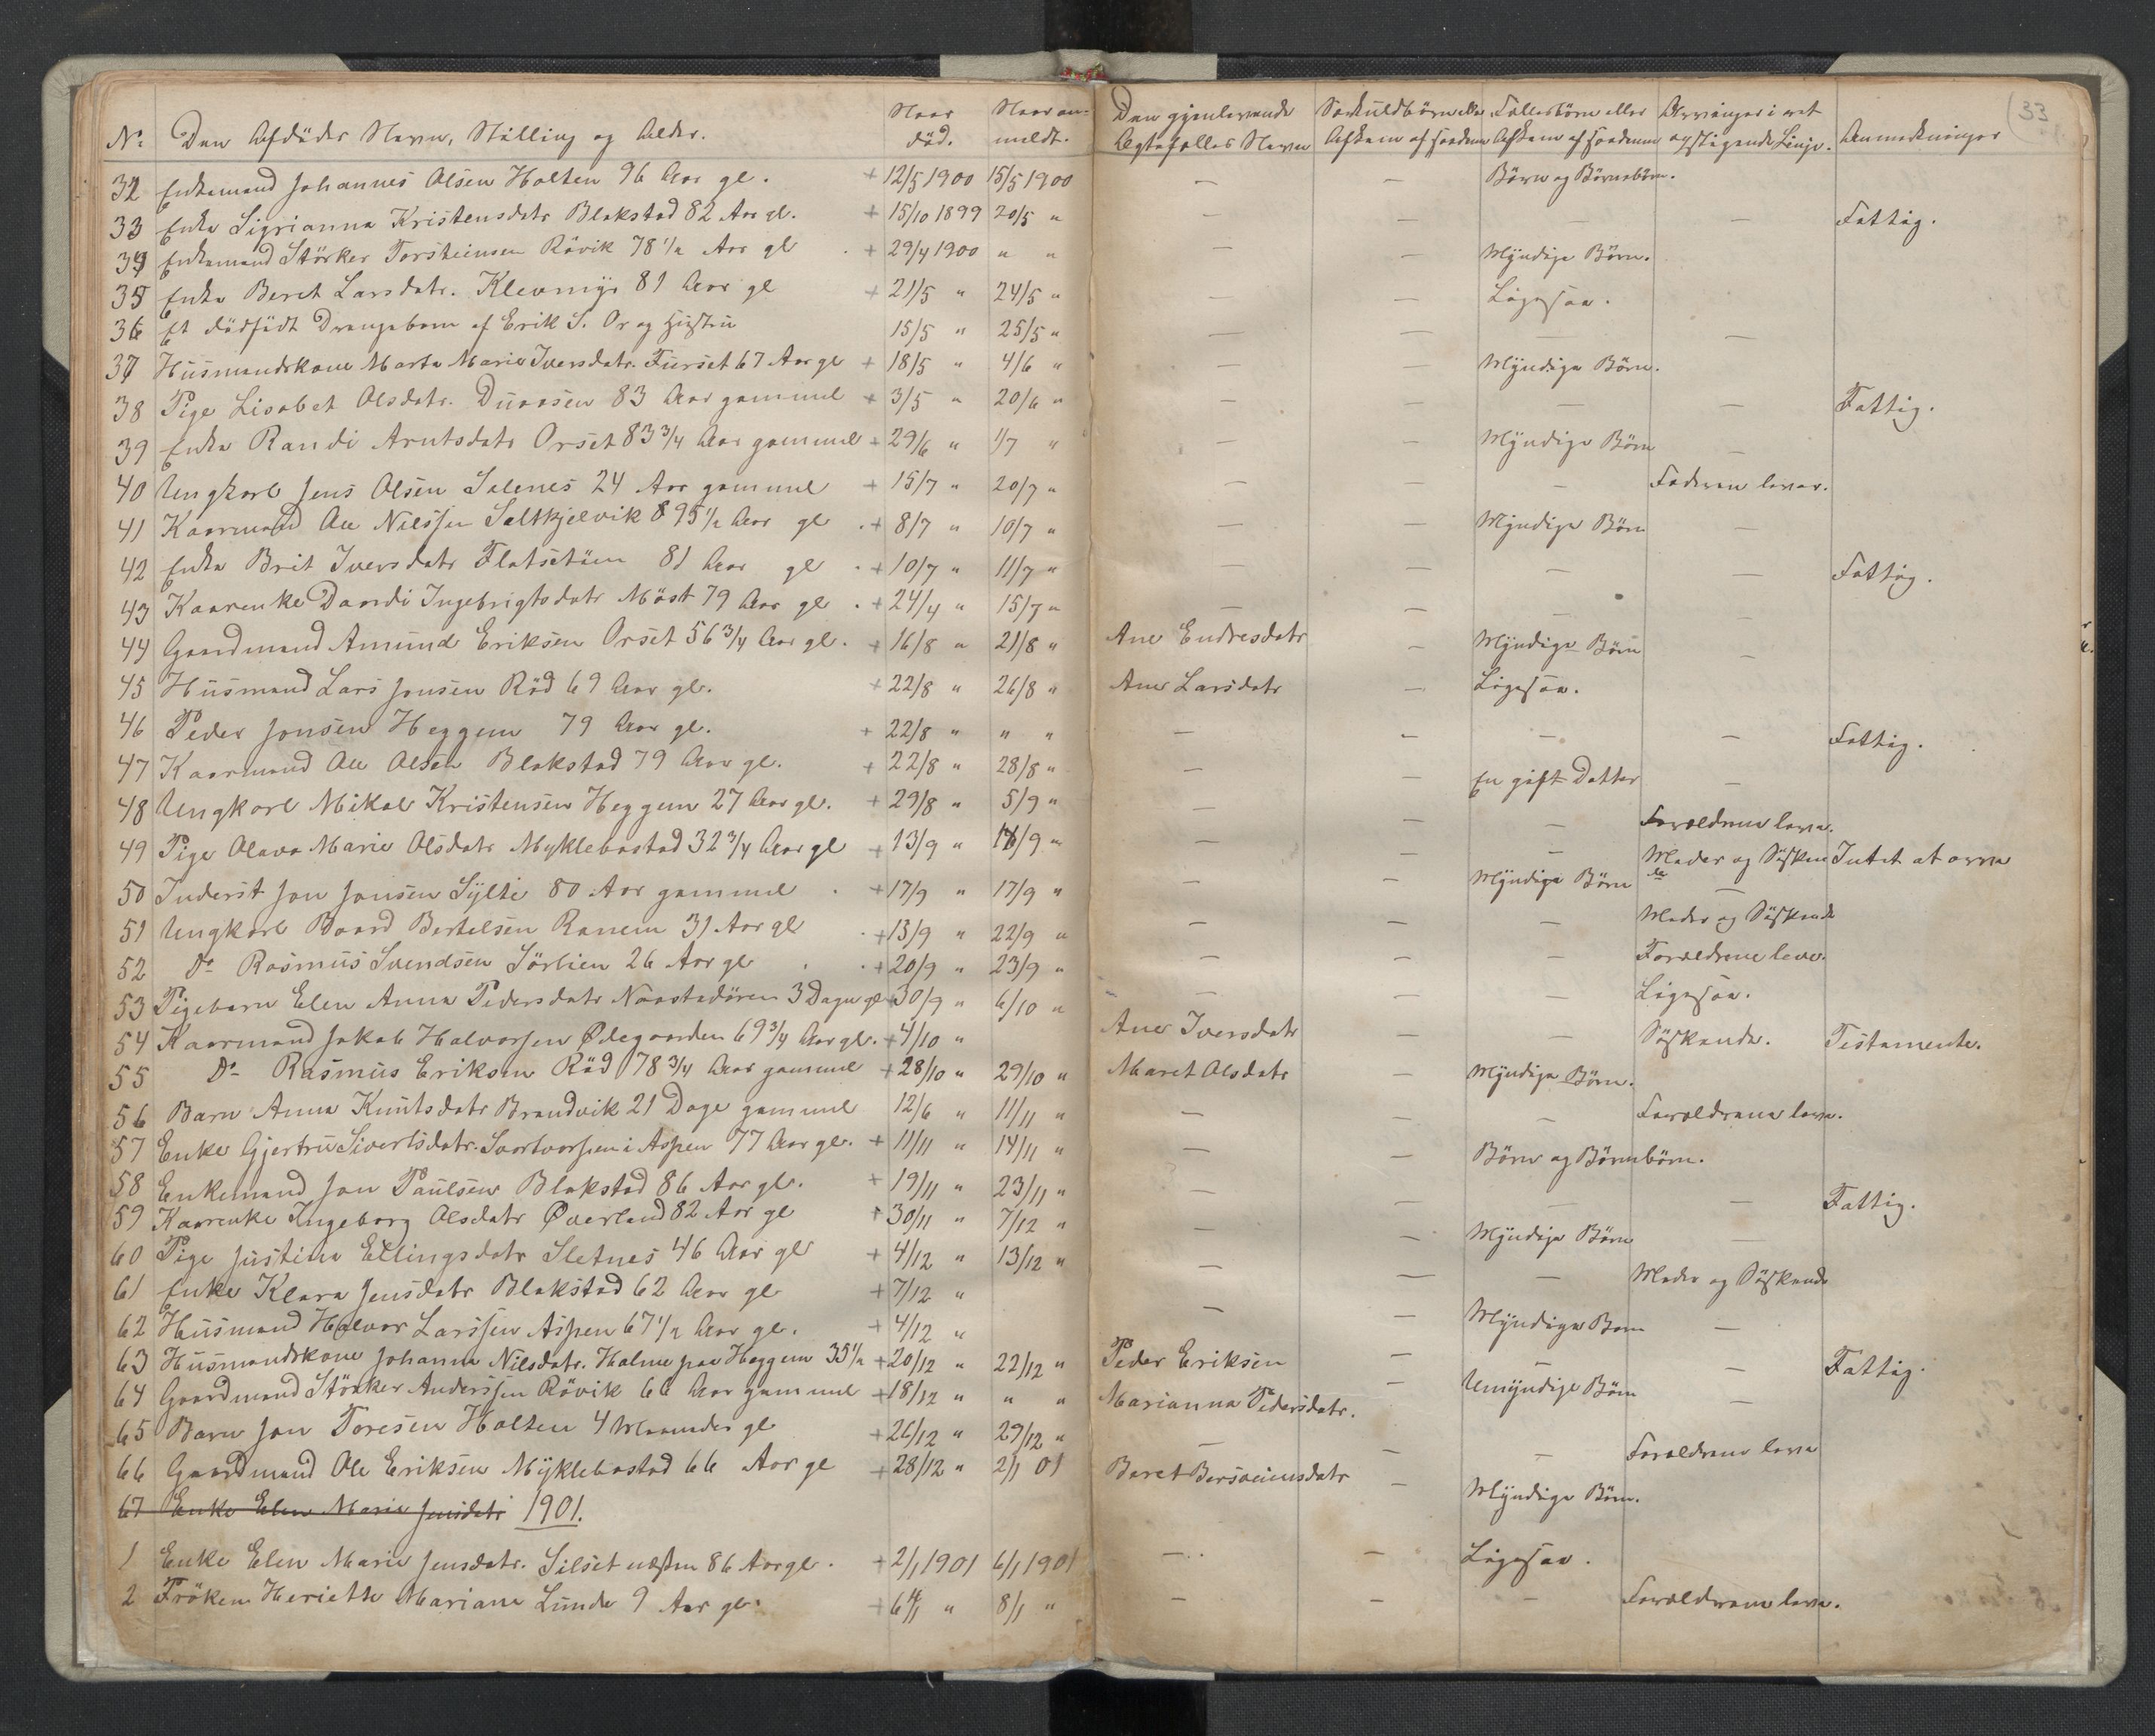 33
No. Den Afdödes Navn, Stilling og Alder. Naar död. Naar anmeldt. Den gjenlevende Ægtefælles Navn Særkuldbörn eller Afkom af saadanne Fællesbörn eller Afkom af saadanne Arvinger i ret opstigende Linje. Anmærkninger
32 Enkemand Johannes Olsen Holten 96 Aar gl. + 12/5 1900 15/5 1900 — — Börn og Börnebörn.
33 Enke Sigrianna Kristensdatr Blakstad 82 Aar gl. + 15/10 1899 20/5 " — — — — Fattig.
34 Enkemand Störker Torsteinsen Rövik 78 1/2 Aar gl + 29/4 1900 " " — — Myndige Börn.
35 Enke Beret Larsdatr. Klevmyr 81 Aar gl + 21/5 " 24/5 " — — Ligesaa.
36 Et dödfödt Drengebarn af Erik S. Or og Hustru 15/5 " 25/5 " — — — —
37 Husmandskone Marta Marie Iversdatr. Furset 67 Aar gl + 18/5 " 4/6 " — — Myndige Börn.
38 Pige Lisabet Olsdatr. Duaasen 83 Aar gammel + 3/5 " 20/6 " — — — — Fattig.
39 Enke Randi Arntsdatr Orset 83 3/4 Aar gammel + 29/6 " 1/7 " — — Myndige Börn —
40 Ungkarl Jens Olsen Salenes 24 Aar gammel + 15/7 " 20/7 " — — — Faderen lever.
41 Kaarmand Ole Nilssen Saltkjelvik 95 1/2 Aar gl + 8/7 " 10/7 " — — Myndige Börn —
42 Enke Brit Iversdatr Flatsetöien 81 Aar gl + 10/7 " 11/7 " — — — — Fattig.
43 Kaarenke Dordi Ingebrigtsdatr Möst 79 Aar gl + 24/4 " 15/7 " — — — —
44 Gaardmand Amund Eriksen Orset 56 3/4 Aar gl. + 16/8 " 21/8 " Ane Endresdatr — Myndige Börn —
45 Husmand Lars Jonsen Röd 69 Aar gl. + 22/8 " 26/8 " Ane Larsdatr — Ligesaa.
46 Peder Jonsen Heggem 79 Aar gl. + 22/8 " " " — — — — Fattig.
47 Kaarmand Ole Olsen Blakstad 79 Aar gl. + 22/8 " 28/8 " — — En gift Datter —
48 Ungkarl Mikal Kristensen Heggem 27 Aar gl. + 29/8 " 5/9 " — — — Forældrene leve.
49 Pige Olava Marie Olsdatr Myklebostad 32 3/4 Aar gl + 13/9 " 16/9 " — — Moder og Söskende Intet at arve
50 Inderst Jon Jonsen Sylte 80 Aar gammel + 17/9 " 17/9 " — — Myndige Börn —
51 Ungkarl Baard Bertelsen Ranem 31 Aar gl + 13/9 " 22/9 " — — — Moder og Söskende
52 Do Rasmus Svendsen Sörlien 26 Aar gl + 20/9 " 23/9 " — — — Forældrene leve.
53 Pigebarn Elen Anna Pedersdatr Naastadören 3 Dage gl + 30/9 " 6/10 " — — — Ligesaa.
54 Kaarmand Jakob Halvorsen Ødegaarden 69 3/4 Aar gl. + 4/10 " Ane Iversdatr — — Söskende. Testamente.
55 Do Rasmus Eriksen Röd 78 3/4 Aar gammel + 28/10 " 29/10 " Maret Olsdatr — Myndige Börn.
56 Barn Anna Knutsdatr Brandvik 21 Dage gammel 12/6 " 11/11 " — — — Forældrene leve.
57 Enke Gjertru Sivertsdatr. i Aspen 77 Aar gl. + 11/11 " 14/11 " — — Börn og Börnebörn.
58 Enkemand Jon Paulsen Blakstad 86 Aar gl. + 19/11 " 23/11 " — — — — Fattig.
59 Kaarenke Ingeborg Olsdatr Øverland 82 Aar gl + 30/11 " 7/12 " — — Myndige Börn —
60 Pige Justina Ellingsdatr Sletnes 46 Aar gl + 4/12 " 13/12 " — — — Moder og Söskende
61 Enke Klara Jensdatr Blakstad 62 Aar gl + 7/12 " — — Myndige Born —
62 Husmand Halvor Larssen Aspen 67 1/2 Aar gl. + 4/12 "
63 Husmandskone Johanna Nilsdatr. Holme paa Heggem 35 1/2 + 20/12 " 22/12 " Peder Eriksen — Umyndige Börn — Fattig.
64 Gaardmand Störker Anderssen Rövik 66 Aar gammel + 18/12 " " " Marianna Pedersdatr. —
65 Barn Jon Toresen Holten 4 Maaneder gl + 26/12 " 29/12 " — — — Forældrene leve
66 Gaardmand Ole Eriksen Myklebostad 66 Aar gl + 28/12 " 2/1 01 Beret Bersveinsdatr — Myndige Börn.
67 Enke Elen Marie Jensdatr 1901.
1 Enke Elen Marie Jensdatr. Silset næsten 86 Aar gl. + 2/1 1901 6/1 1901 — — Ligesaa.
2 Fröken Heriette Mariane Lunde 9 Aar gl. + 6/1 " 8/1 " — — — Forældrene leve.